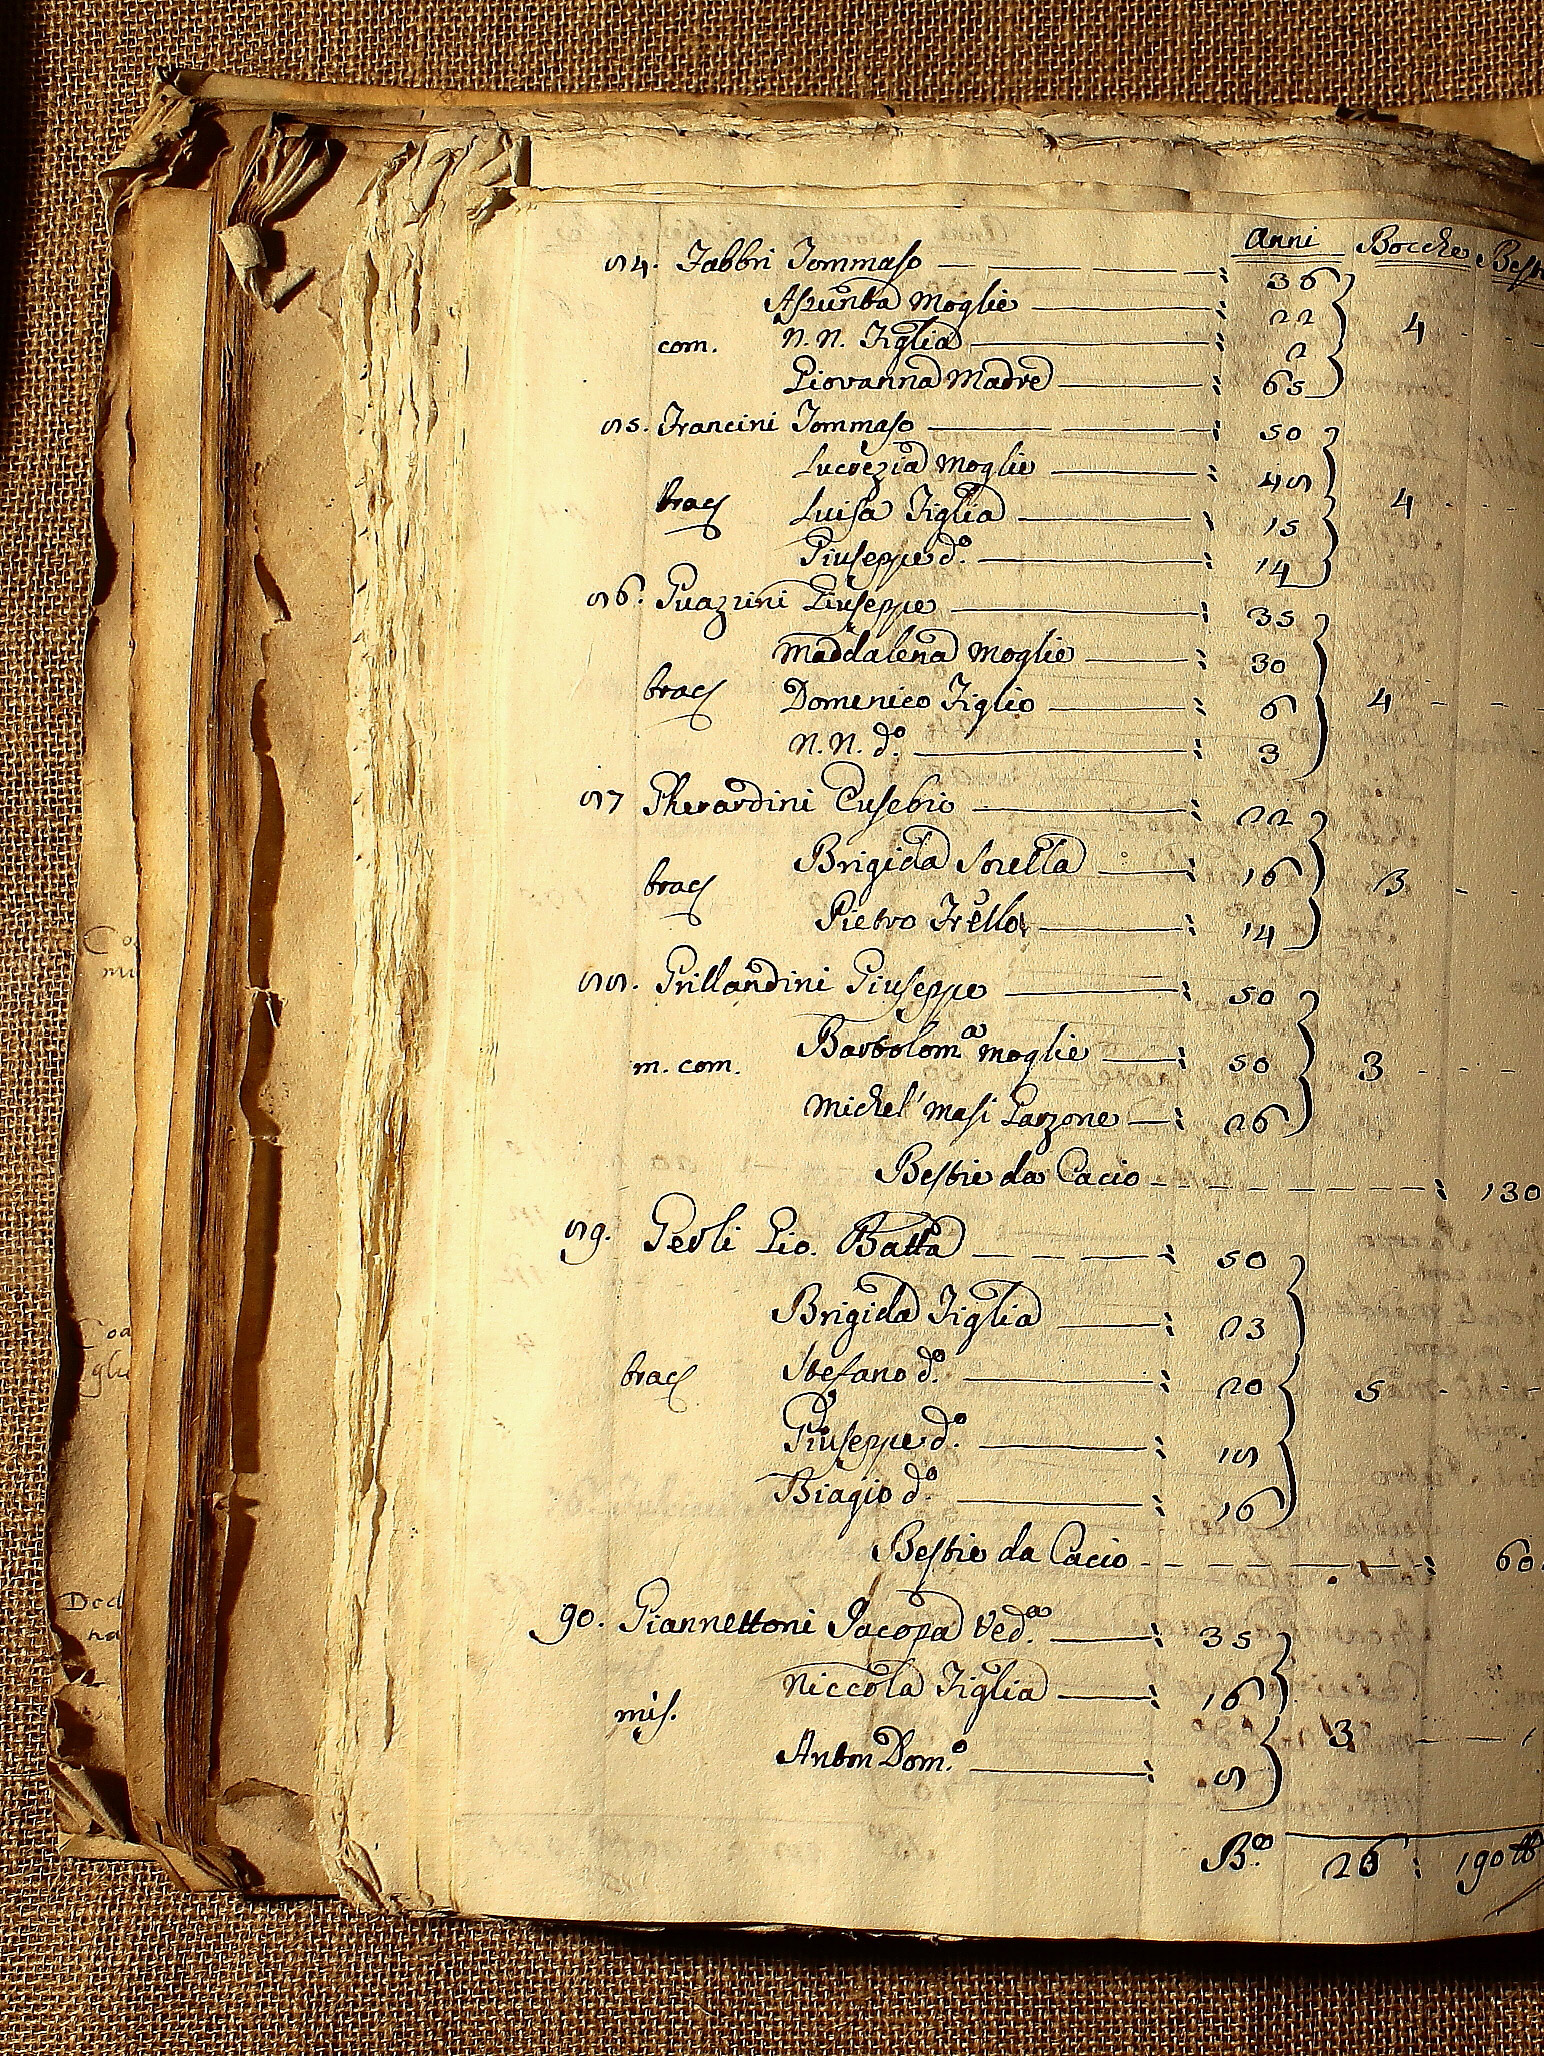 Anni Bocche Besti
84. Fabbri Tommaso 36
Assunta Moglie 22
com. N. N. Figlia 2 4
Giovanna Madre 65
85. Francini Tommaso 50
Lucrezia Moglie 48
brac Luisa Figlia 15 4
Giuseppe d.o 14
86. Guazzini Giuseppe 35
Maddalena Moglie 30
brac Domenico Figlio 6 4
N. N. d.o 3
87 Gherardini Eusebio 22
Brigida Sorella 16
brac Pietro Frello 14 3
88. Grillandini Giuseppe 50
m. com. Bartolom.a moglie 50 3
Michel' Masi Garzone 26
Bestie da Cacio 130
89. Gerli Gio. Batta 50
Brigida Figlia 23
brac Stefano d.o 20 5
Giuseppe d.o 18
Biagio d.o 16
Bestie da Cacio 60
90. Giannettoni Jacopa Ved.a 35
mis. Niccola Figlia 16 3
Anton Dom.o 8
B.e 26 : 190